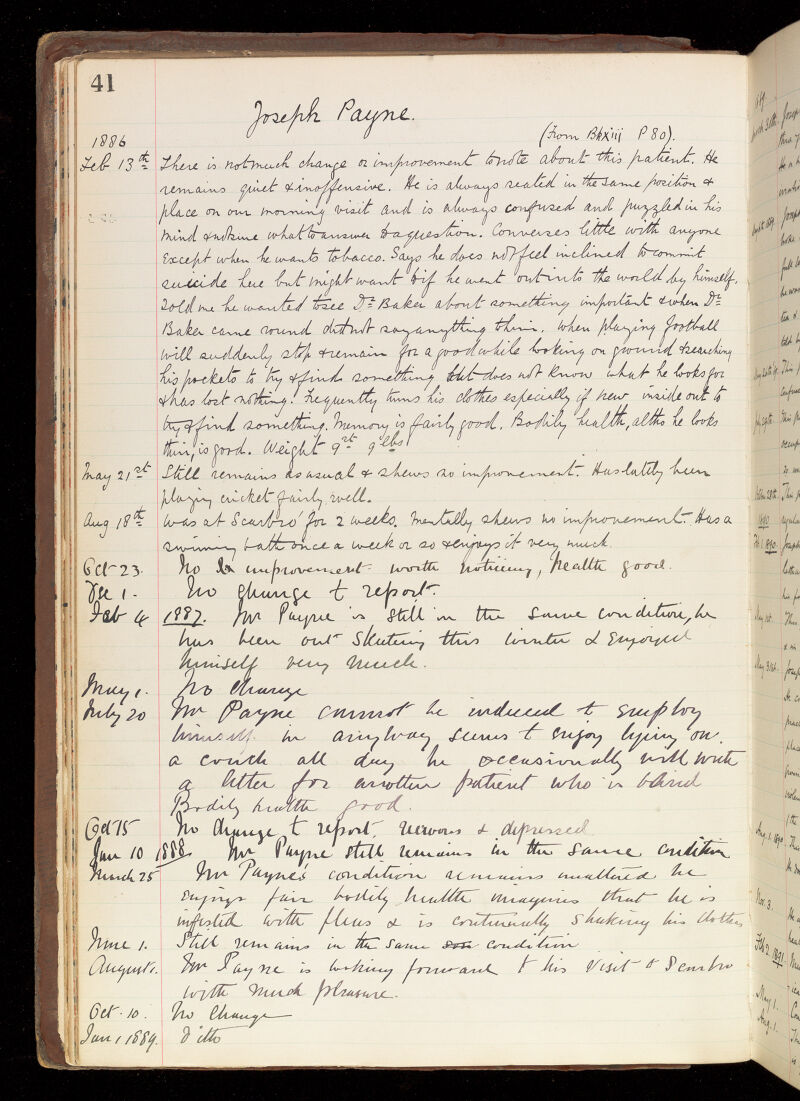 41
Joseph Payne.
(From Bk xiii P 80).
1886
Feb 13th There is not much change or improvement to note about this patient. He
remains quiet & inoffensive. He is always seated in the same position &
place on our morning visit and is always confused and puzzled in his
mind & what to answer to a question. Converses little with anyone
except when he wants tobacco. Says he does not feel inclined to commit
suicide here but might want to if he went out into the world by himself.
Told me he wanted to see Dr Baker about something important & when Dr
Baker came round did not say anything to him. When playing football
will suddenly stop & remain for a good while looking on ground & searching
his pockets to try & find something but does not know what he looks for
& has lost nothing. Frequently turns his clothes especially if new inside out to
try & find something. Memory is fairly good. Bodily health, altho he looks
thin, is good. Weight 9st 9lbs
May 21st Still remains as usual & shews no improvement. Has lately been
playing cricket fairly well.
Aug 18th Was at Scarbro' for 2 weeks. Mentally shews no improvement. Has a
swimming bath once a week or so & enjoys it very much.
Oct 23. No improvement worth noticing, health good.
Dec 1. No change to report.
Feb 4 1887. Mr Payne is still in the same condition, he
has been out skating this winter & enjoyed
himself very much.
May 1. No change
July 20 Mr Payne cannot be induced to employ
himself in anyway seems to enjoy lying on
a couch all day he occasionally will write
a letter for another patient who is blind
Bodily health good.
Oct 15 No change to report, nervous & depressed
Jan 10 1888. Mr Payne still remains in the same condition
March 25 Mr Payne's condition remains unaltered he
enjoys fair bodily health imagines that he is
infested with fleas & is continually shaking his clothes
June 1. Still remains in the same condition
August 1. Mr Payne is looking forward to his visit to Scarbro
with much pleasure.
Oct. 10. No change
Jan 1 1889. Ditto